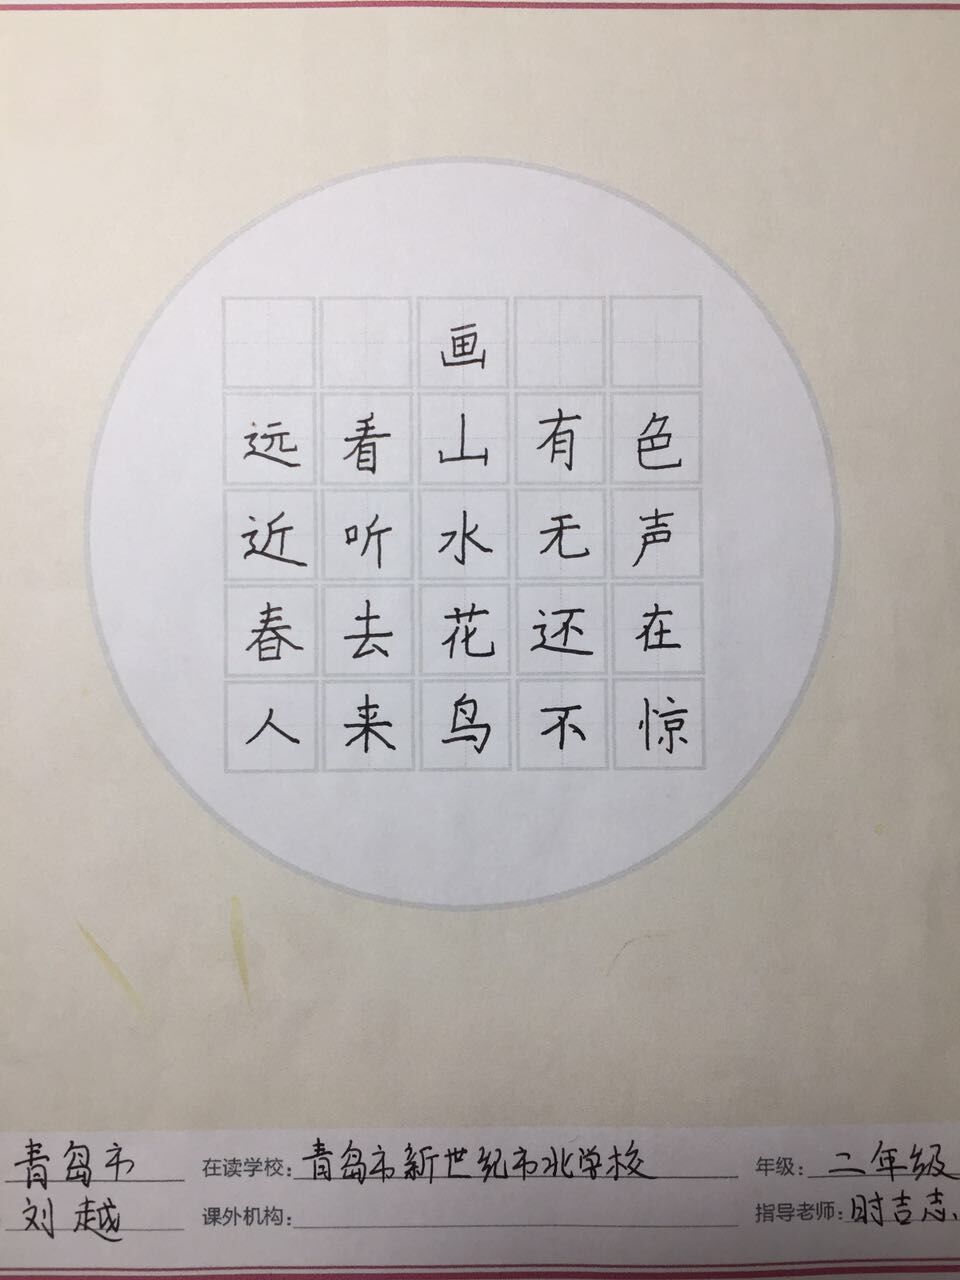 画
远看山有色
近听水无声
春去花还在
人来鸟不惊
青岛市 在读学校: 青岛市新世纪市北学校 年级: 二年级
刘越 课外机构: 指导老师: 时吉志